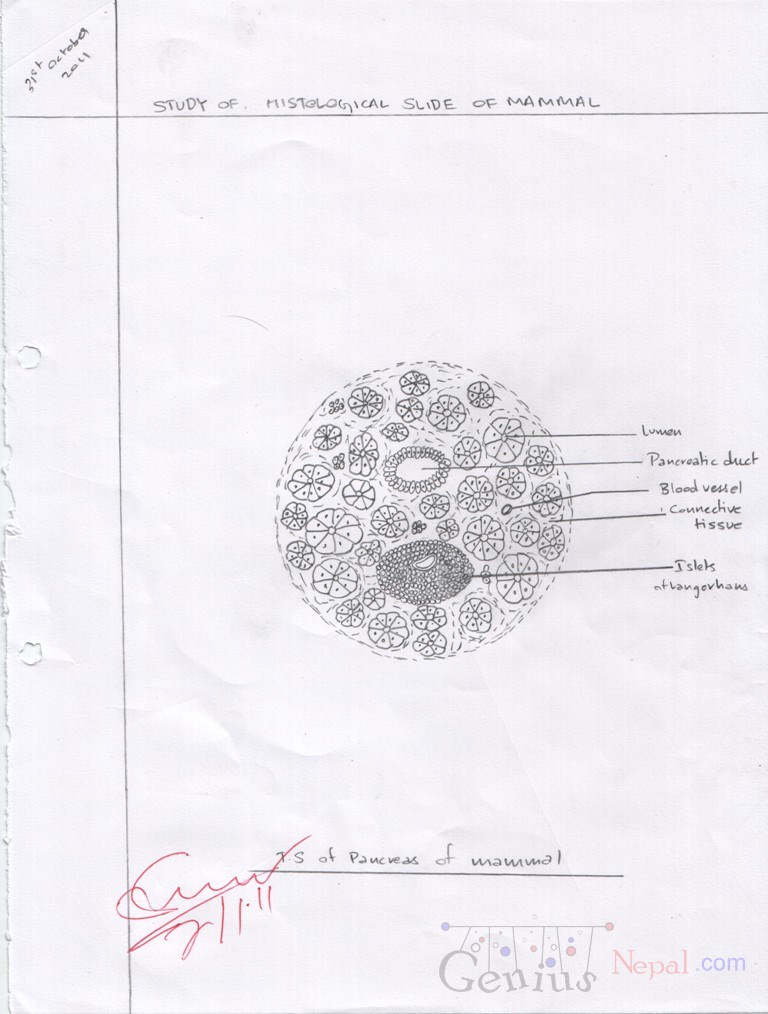 31st October
2011
STUDY OF. HISTOLOGICAL SLIDE OF MAMMAL
Lumen
Pancreatic duct
Blood vessel
Connective
tissue
Islets
of langerhans
T.S of Pancreas of mammal
Genius Nepal.com